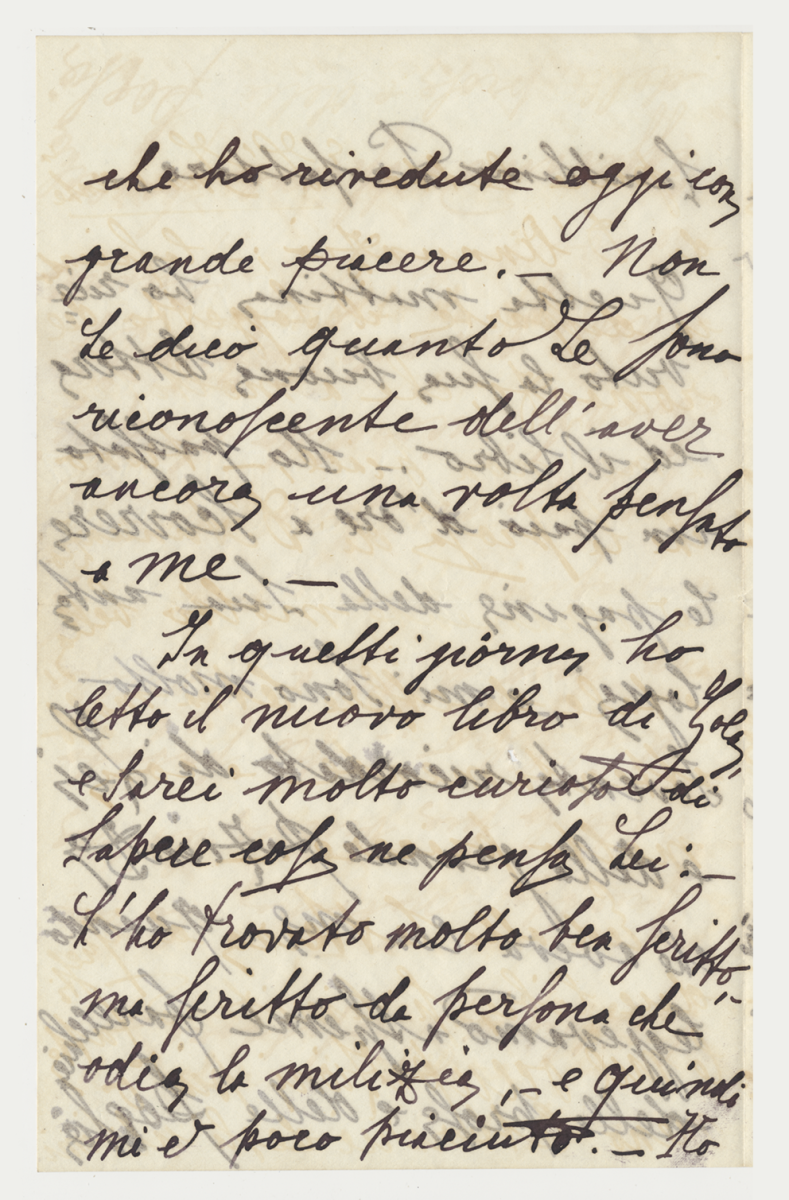 che ho rivedute oggi con
grande piacere. – Non
Le dico quanto Le sono
riconoscente dell'aver
ancora una volta pensato
a me. –
In questi giorni ho
letto il nuovo libro di Zola,
e sarei molto curioso di
sapere cosa ne pensa Lei: –
L'ho trovato molto ben scritto, –
ma scritto da persona che
odia la milizia, – e quindi
mi è poco piaciuto. – Ho